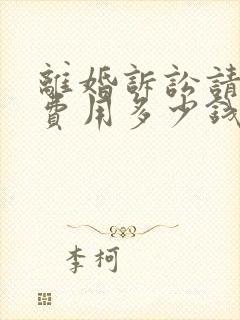 離婚訴訟請
費用多少錢
李柯